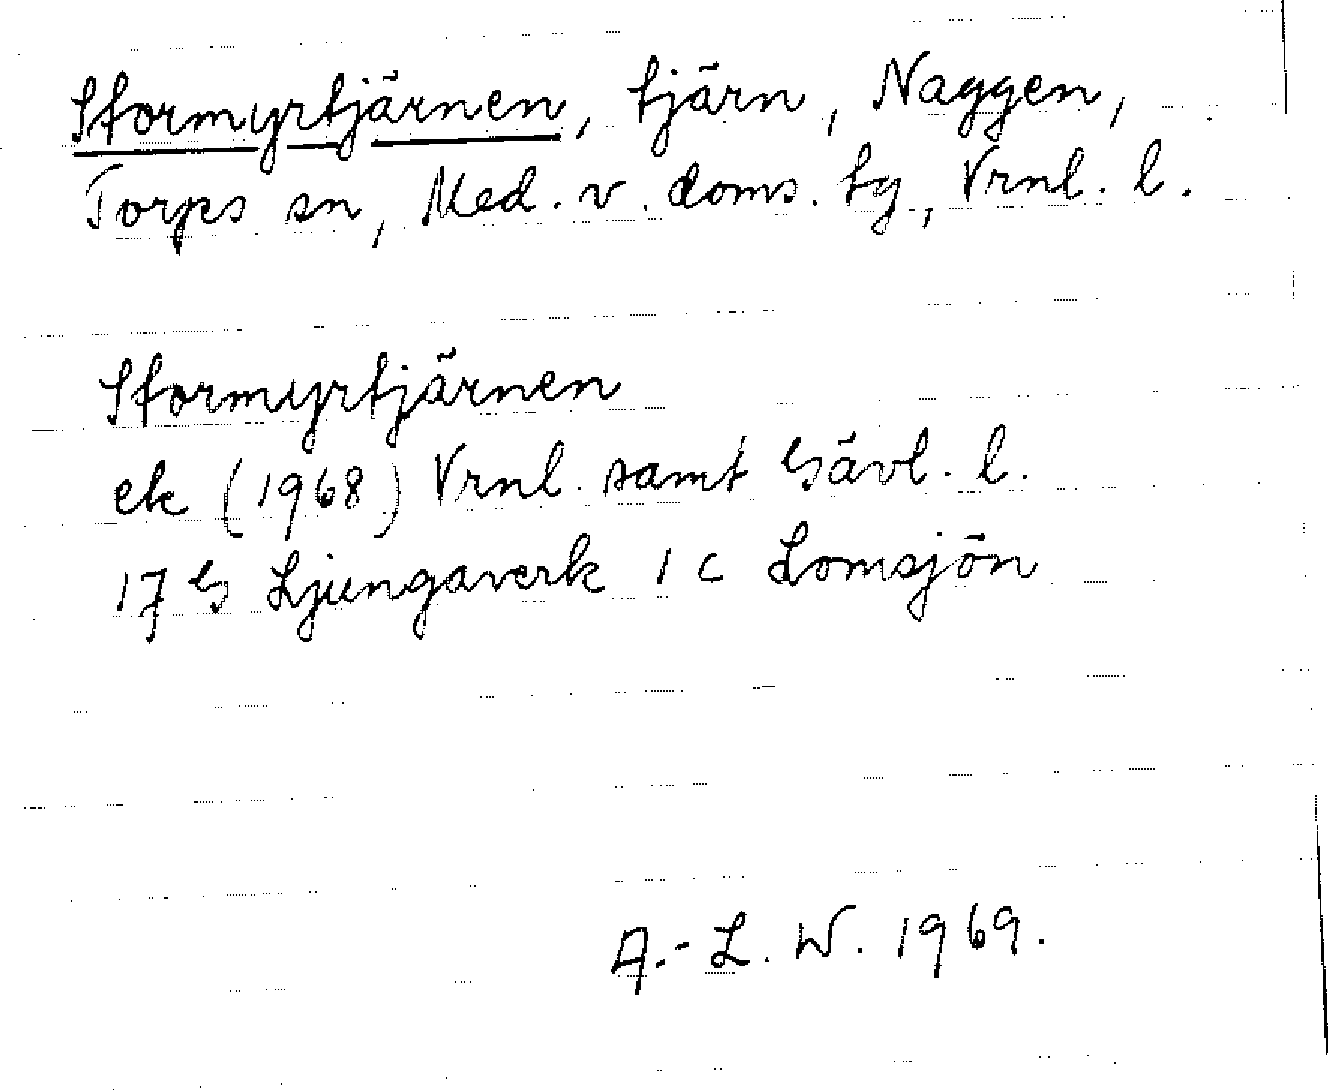 Stormyrtjärnen, tjärn, Naggen,
Torps sn, Med. v. doms. tg, Vrnl. l.
Stormyrtjärnen
ek (1968) Vrnl. samt Gävl. l.
17 G Ljungaverk 1 c Lomsjön
A.-L. W. 1969.